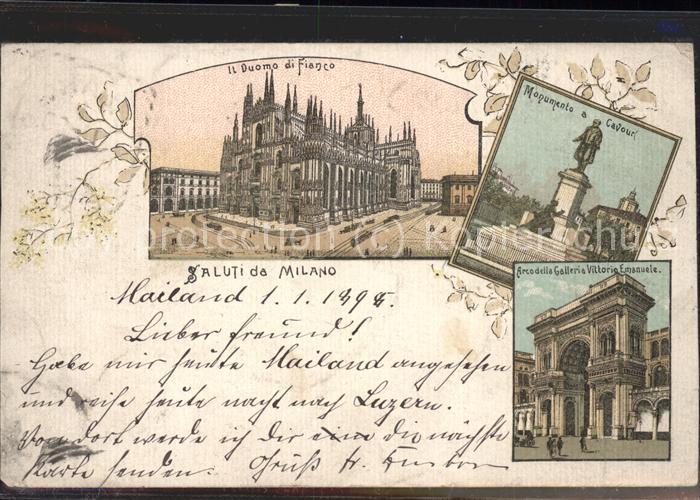 Il Duomo di Fianco
Monumento a Cavour
Arco della Galleria Vittorio Emanuele.
Saluti da Milano
Mailand 1.1.1898.
Lieber Freund!
Habe mir heute Mailand angesehen
und reise heute nacht nach Luzern.
Von dort werde ich dir eine die nächste
Karte senden. Gruß
protection (c) kopierschutz